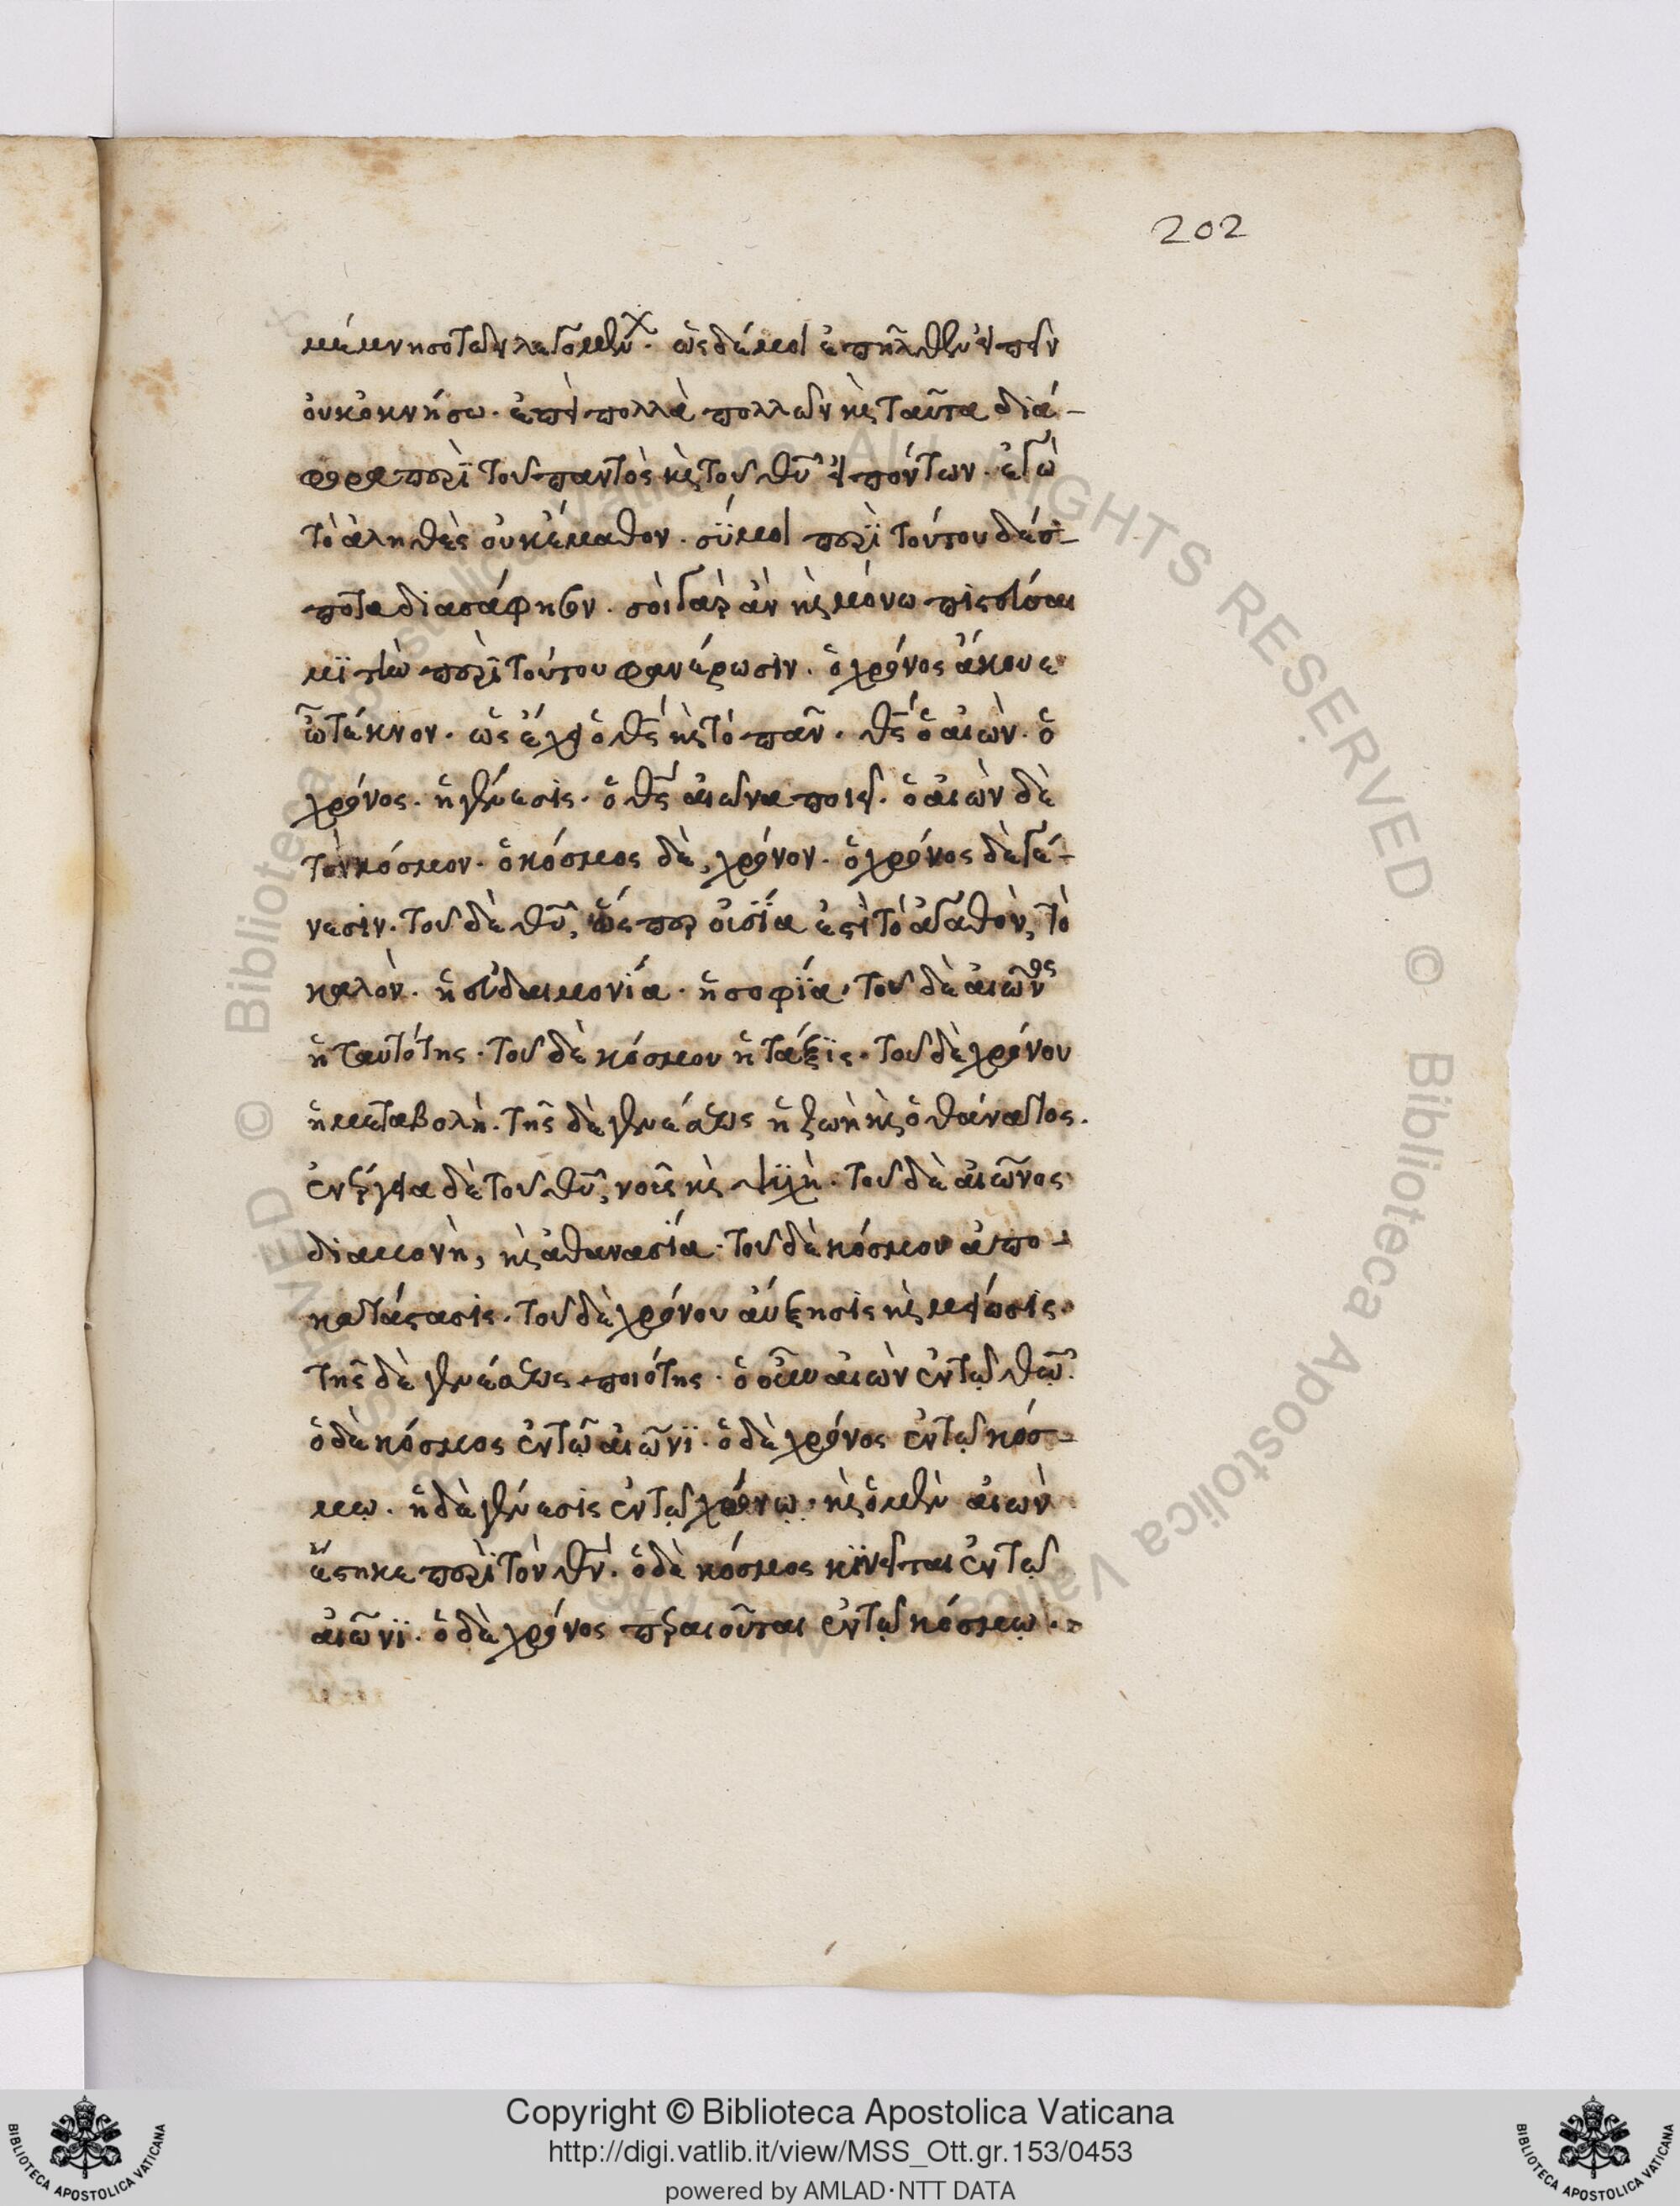 202
μέμνησο τῶν λεγομένων. ὡς δέ μοι ἐπῆλθεν εἰπεῖν
οὐκ ὀκνήσω. ἐπεὶ πολλὰ πολλῶν κὶ ταῦτα διά-
φορα περὶ τοῦ παντὸς κὶ τοῦ θῦ εἰπόντων. ἐγὼ
τὸ ἀληθὲς οὐκ ἔμαθον. σύ μοι περὶ τούτου δέσ-
ποτα διασάφησον. σοὶ γὰρ ἂν κὶ μόνω πιστεύσαιμι
τὴν περὶ τούτου φανέρωσιν. ὁ χρόνος ἄκουε
ὦ τέκνον. ὡς ἔχει ὁ θς κὶ τὸ πᾶν. θς ὁ αἰὼν. ὁ
χρόνος. ἡ γένεσις. ὁ θς αἰῶνα ποιεῖ. ὁ αἰὼν δὲ
τὸν κόσμον. ὁ κόσμος δὲ, χρόνον. ὁ χρόνος δὲ γέ-
νεσιν. τοῦ δὲ θῦ, ὥσπερ οὐσία ἐστὶ τὸ ἀγαθὸν, τὸ
καλὸν. ἡ εὐδαιμονία. ἡ σοφία. τοῦ δὲ αἰῶνος
ἡ ταυτότης. τοῦ δὲ κόσμου ἡ τάξις. τοῦ δὲ χρόνου
ἡ μεταβολὴ. τῆς δὲ γενέσεως ἡ ζωὴ κὶ ὁ θάνατος.
ἐνέργεια δὲ τοῦ θῦ, νοῦς κὶ ψυχὴ. τοῦ δὲ αἰῶνος
διαμονὴ, κὶ ἀθανασία. τοῦ δὲ κόσμου ἀπο-
κατάστασις. τοῦ δὲ χρόνου αὔξησις κὶ μείωσις.
τῆς δὲ γενέσεως ποιότης. ὁ οὖν αἰὼν ἐν τῷ θῶ.
ὁ δὲ κόσμος ἐν τῶ αἰῶνι. ὁ δὲ χρόνος ἐν τῷ κόσ-
μῳ. ἡ δὲ γένεσις ἐν τῷ χρόνῳ. κὶ ὁ μὲν αἰὼν
ἕστηκε περὶ τὸν θν. ὁ δὲ κόσμος κινεῖται ἐν τῷ
αἰῶνι. ὁ δὲ χρόνος περαιοῦται ἐν τῷ κόσμῳ.
Copyright © Biblioteca Apostolica Vaticana
http://digi.vatlib.it/view/MSS_Ott.gr.153/0453
powered by AMLAD·NTT DATA
BIBLIOTECA APOSTOLICA VATICANA
BIBLIOTECA APOSTOLICA VATICANA